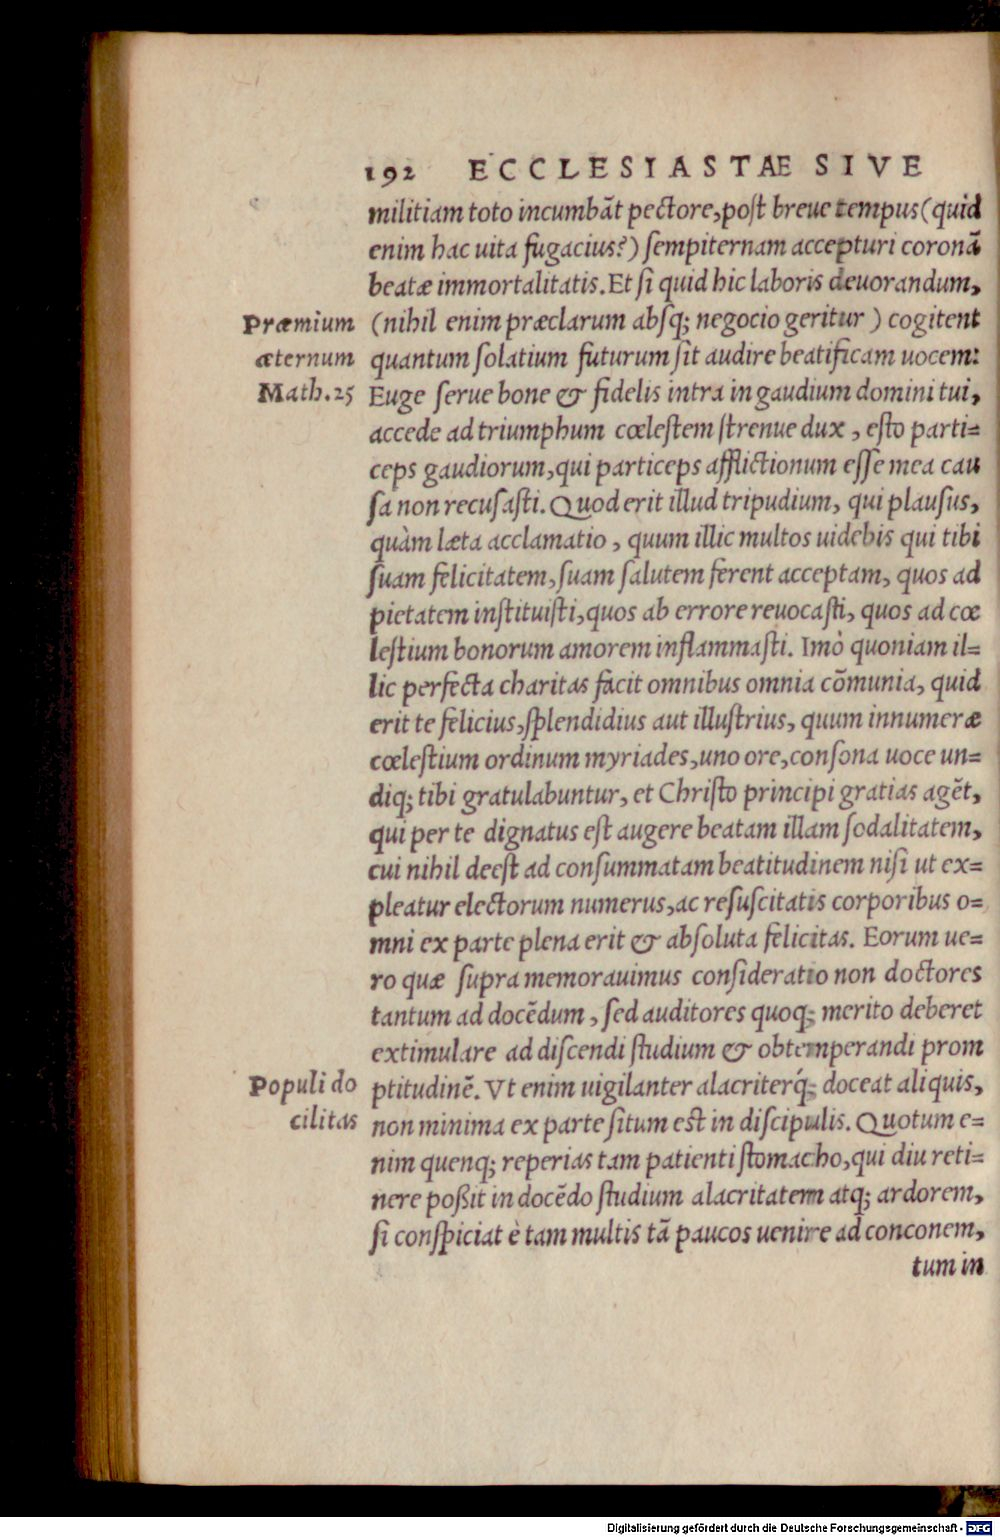 192 ECCLESIASTAE SIVE
militiam toto incumbãt pectore,poſt breue tempus(quid
enim hac uita fugacius?) ſempiternam accepturi coronã
beatæ immortalitatis. Et ſi quid hic laboris deuorandum,
Præmium
æternum
Math.25
(nihil enim præclarum abſq; negocio geritur ) cogitent
quantum ſolatium futurum ſit audire beatificam uocem:
Euge ſerue bone & fidelis intra in gaudium domini tui,
accede ad triumphum cœleſtem ſtrenue dux , eſto parti=
ceps gaudiorum,qui particeps afflictionum eſſe mea cau
ſa non recuſaſti. Quod erit illud tripudium, qui plauſus,
quàm læta acclamatio , quum illic multos uidebis qui tibi
ſuam felicitatem,ſuam ſalutem ferent acceptam, quos ad
pietatem inſtituiſti,quos ab errore reuocaſti, quos ad cœ
leſtium bonorum amorem inflammaſti. Imò quoniam il=
lic perfecta charitas facit omnibus omnia cõmunia, quid
erit te felicius,ſplendidius aut illuſtrius, quum innumeræ
cœleſtium ordinum myriades,uno ore,conſona uoce un=
diq; tibi gratulabuntur, et Chriſto principi gratias agẽt,
qui per te dignatus eſt augere beatam illam ſodalitatem,
cui nihil deeſt ad conſummatam beatitudinem niſi ut ex=
pleatur electorum numerus,ac reſuſcitatis corporibus o=
mni ex parte plena erit & abſoluta felicitas. Eorum ue=
ro quæ ſupra memorauimus conſideratio non doctores
tantum ad docẽdum , ſed auditores quoq; merito deberet
extimulare ad diſcendi ſtudium & obtemperandi prom
Populi do
cilitas
ptitudinẽ. Vt enim uigilanter alacriterq́; doceat aliquis,
non minima ex parte ſitum eſt in diſcipulis. Quotum e=
nim quenq; reperias tam patienti ſtomacho,qui diu reti=
nere poßit in docẽdo ſtudium alacritatem atq; ardorem,
ſi conſpiciat è tam multis tã paucos uenire ad conconem,
tum in
Digitalisierung gefördert durch die Deutsche Forschungsgemeinschaft - DFG